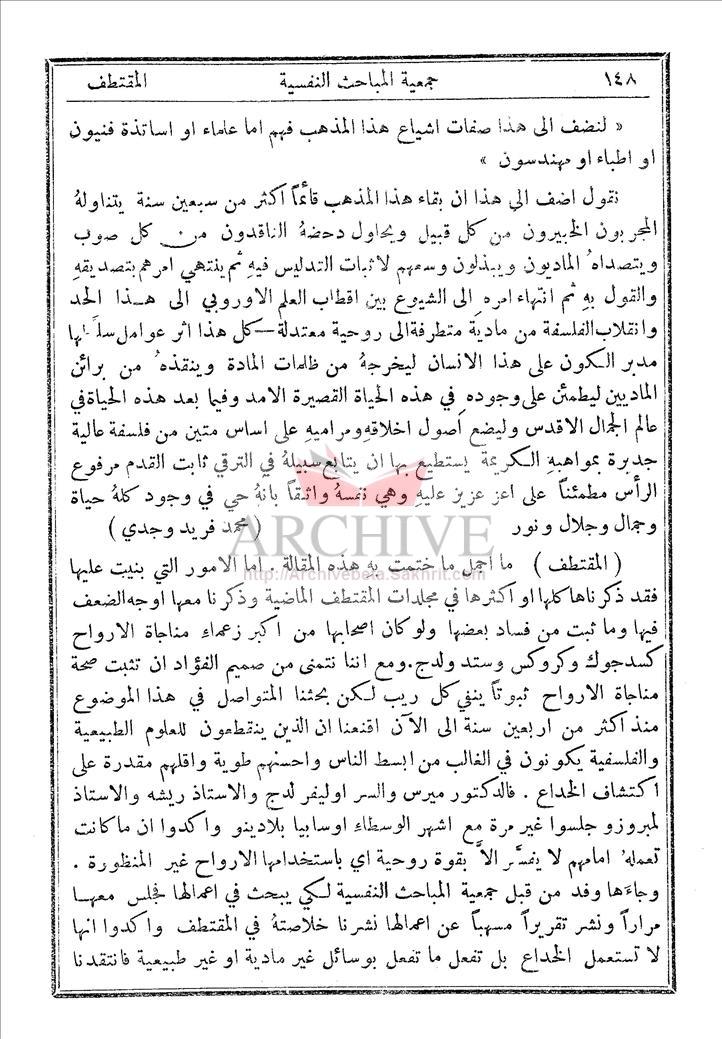 ١٤٨ جمعية المباحث النفسية المقتطف
« لنضف الى هذا صفات اشياع هذا المذهب فهم اما علماء او اساتذة فنيون
او اطباء او مهندسون »
نقول اضف الى هذا ان بقاء هذا المذهب قائمًا أكثر من سبعين سنة يتناولهُ
المجربون الخبيرون من كل قبيل ويحاول دحضهُ الناقدون من كل صوب
ويتصداهُ الماديون ويبذلون وسعهم لاثبات التدليس فيهِ ثم ينتهي امرهم بتصديقهِ
والقول بهِ ثم انتهاء امرهِ الى الشيوع بين اقطاب العلم الاوروبي الى هذا الحد
وانقلاب الفلسفة من مادية متطرفة الى روحية معتدلة — كل هذا اثر عوامل سلطها
مدبر الكون على هذا الانسان ليخرجهُ من ظلمات المادة وينقذهُ من براثن
الماديين ليطمئن على وجوده في هذه الحياة القصيرة الامد وفيما بعد هذه الحياة في
عالم الجمال الاقدس وليضع اصول اخلاقهِ ومراميهِ على اساس متين من فلسفة عالية
جديرة بمواهبهِ الكريمة يستطيع بها ان يتابع سبيلهُ في الترقي ثابت القدم مرفوع
الرأس مطمئنًا على اعز عزيز عليهِ وهي نفسهُ واثقًا بانهُ حي في وجود كلهُ حياة
وجمال وجلال ونور ( محمد فريد وجدي )
ARCHIVE
http://Archivebeta.Sakhrit.com
( المقتطف ) ما اجمل ما ختمت به هذه المقالة . اما الامور التي بنيت عليها
فقد ذكرناها كلها او اكثرها في مجلدات المقتطف الماضية وذكرنا معها اوجه الضعف
فيها وما ثبت من فساد بعضها ولو كان اصحابها من اكبر زعماء مناجاة الارواح
كسدجوك وكروكس وستد ولدج. ومع اننا نتمنى من صميم الفؤاد ان تثبت صحة
مناجاة الارواح ثبوتًا ينفي كل ريب لكن بحثنا المتواصل في هذا الموضوع
منذ اكثر من اربعين سنة الى الآن اقنعنا ان الذين ينقطعون للعلوم الطبيعية
والفلسفية يكونون في الغالب من ابسط الناس واحسنهم طوية واقلهم مقدرة على
اكتشاف الخداع . فالدكتور ميرس والسر اوليفر لدج والاستاذ ريشه والاستاذ
لمبروزو جلسوا غير مرة مع اشهر الوسطاء اوسابيا بلادينو واكدوا ان ما كانت
تعملهُ امامهم لا يفسَّر الاَّ بقوة روحية اي باستخدامها الارواح غير المنظورة .
وجاءها وفد من قبل جمعية المباحث النفسية لكي يبحث في اعمالها فجلس معها
مرارًا ونشر تقريرًا مسهبًا عن اعمالها نشرنا خلاصتهُ في المقتطف واكدوا انها
لا تستعمل الخداع بل تفعل ما تفعل بوسائل غير مادية او غير طبيعية فانتقدنا